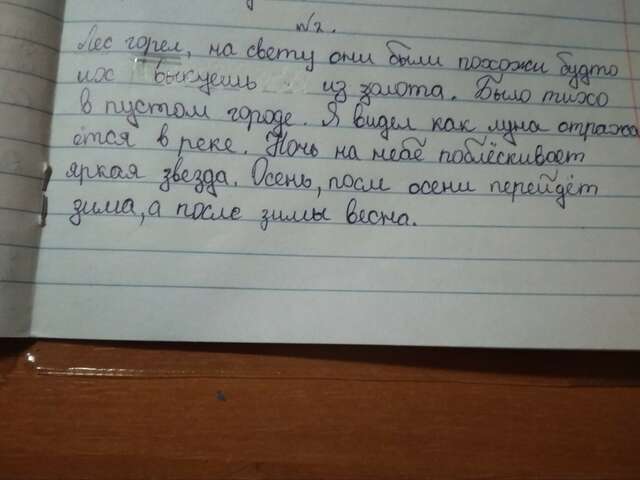 №2.
Лес горел, на свету они были похожи будто
иос выкуешь из золота. Было тихо
в пустом городе. Я видел как луна отража
ётся в реке. Ночь на небе поблёскивает
яркая звезда. Осень, посли осени перейдёт
зима, а после зимы весна.